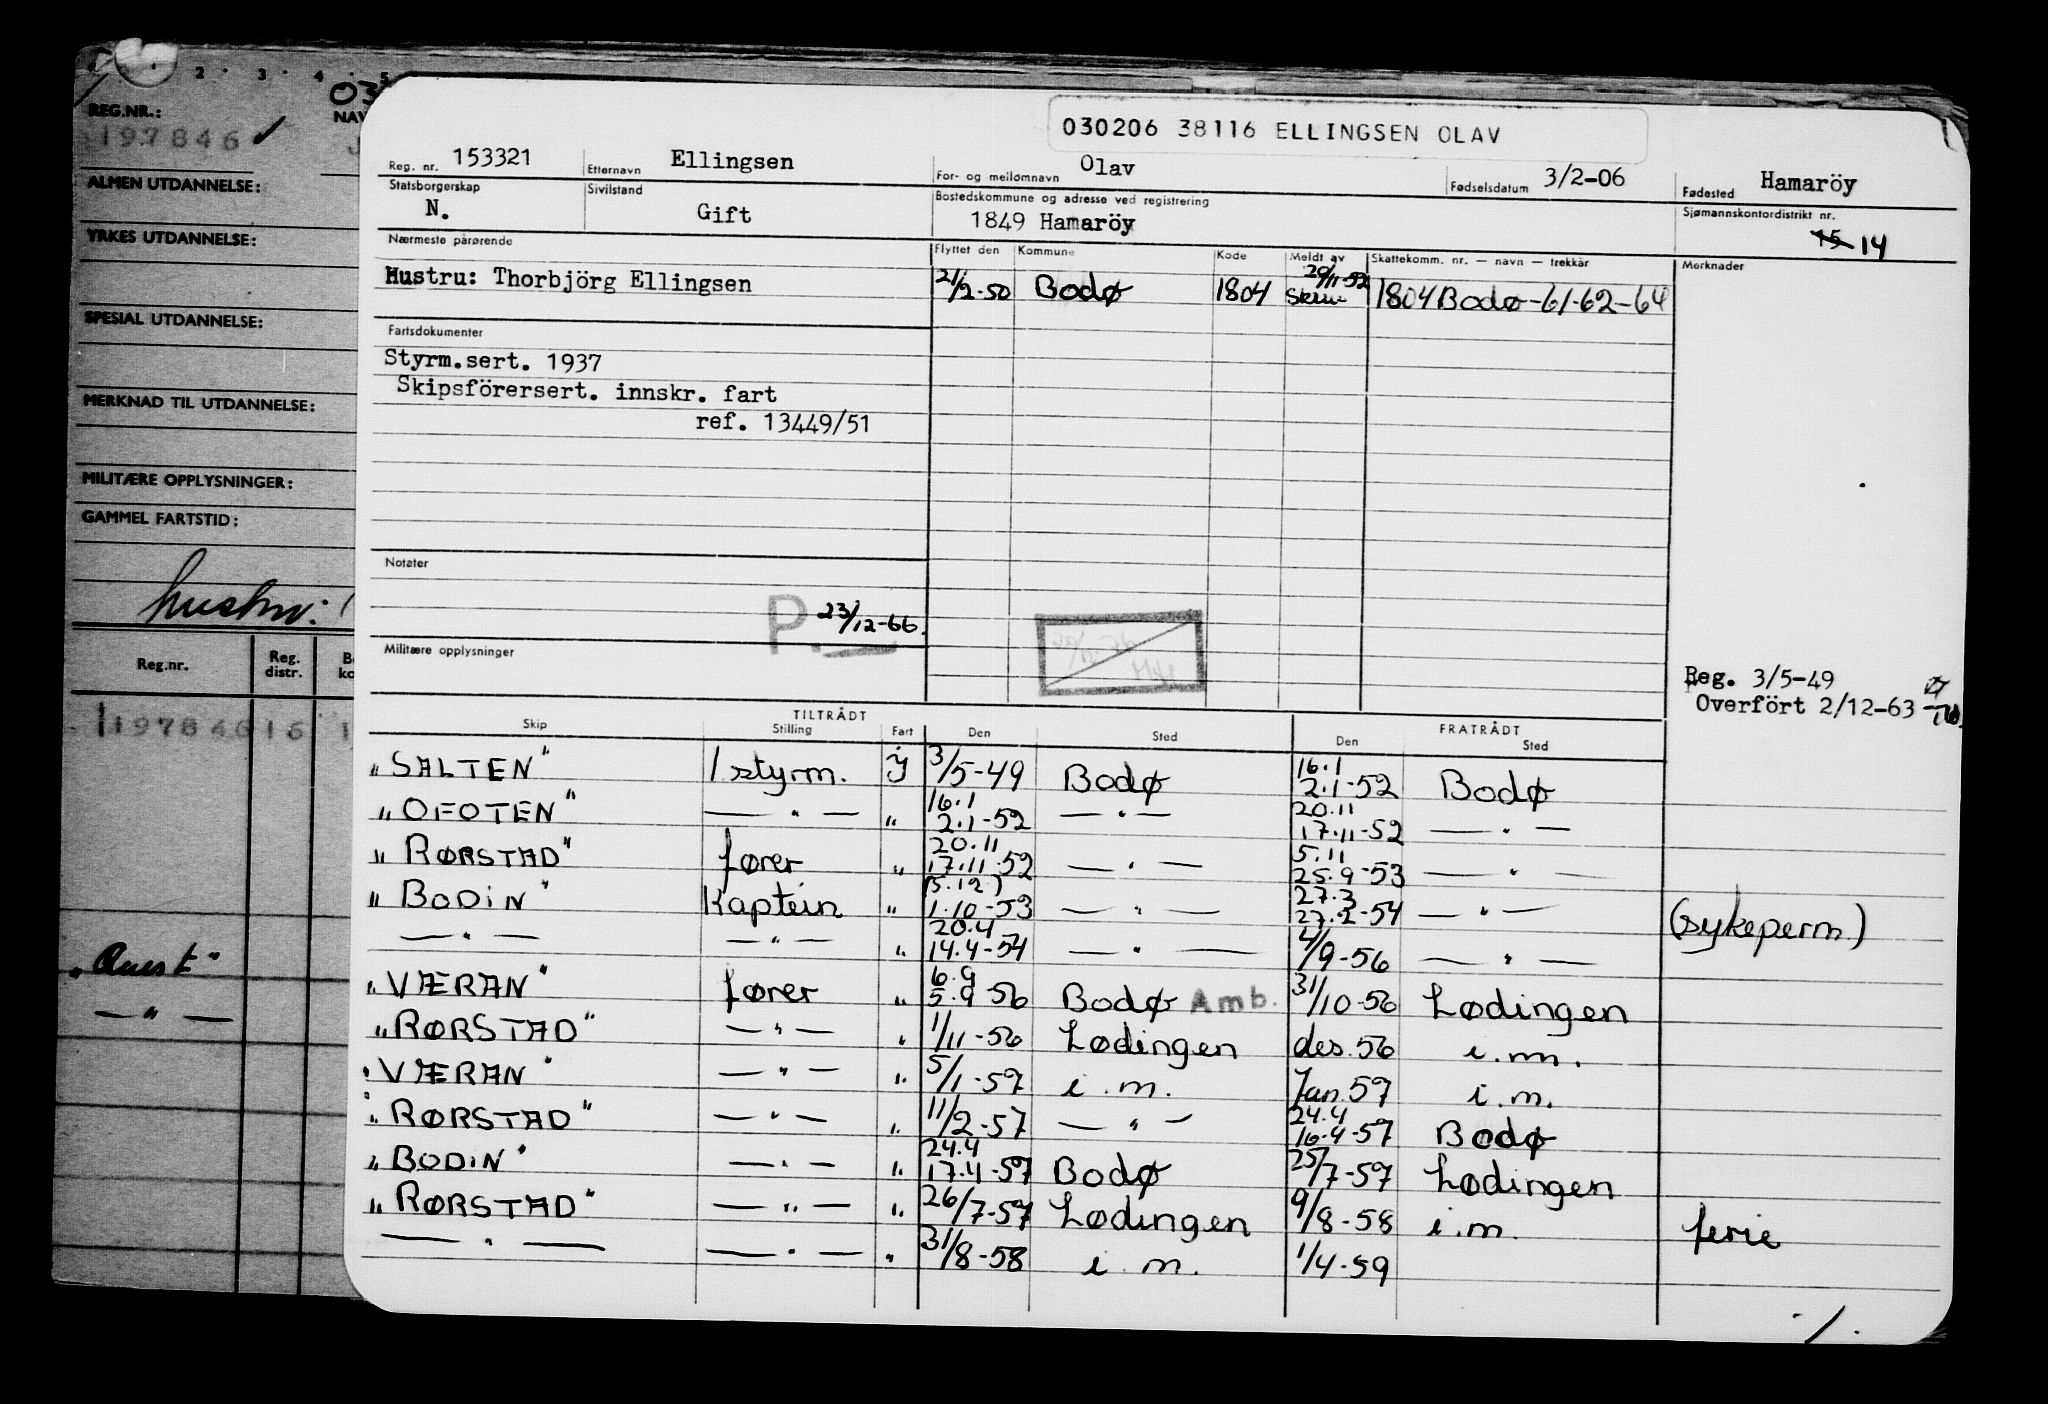 2 · 3 · 4 · 5
REG.NR.:
197846 ✓
ALMEN UTDANNELSE:
YRKES UTDANNELSE:
SPESIAL UTDANNELSE:
MERKNAD TIL UTDANNELSE:
MILITÆRE OPPLYSNINGER:
GAMMEL FARTSTID:
hustru:
Reg.nr. Reg. distr.
197846 15
"Quest"
— " —
030206 38116 ELLINGSEN OLAV
Reg. nr. 153321 Etternavn Ellingsen For- og mellomnavn Olav Fødselsdatum 3/2-06 Fødested Hamaröy
Statsborgerskap N. Sivilstand Gift Bostedskommune og adresse ved registrering 1849 Hamaröy Sjømannskontordistrikt nr. 15 14
Nærmeste pårørende Flyttet den Kommune Kode Meldt av Skattekomm. nr. — navn — trekkår Merknader
Hustru: Thorbjörg Ellingsen 21/2-50 Bodø 1804 20/11-52 1804 Bodø-61-62-64
Fartsdokumenter
Styrm.sert. 1937
Skipsförersert. innskr. fart
ref. 13449/51
Notater
P. 23/12-66.
Militære opplysninger
Reg. 3/5-49
Overfört 2/12-63
TILTRÅDT FRATRÅDT
Skip Stilling Fart Den Sted Den Sted
"SALTEN" 1 styrm. J 3/5-49 Bodø 16.1 2.1-52 Bodø
"OFOTEN" — " — " 16.1 2.1-52 — " — 20.11 17.11-52 — " —
"RØRSTAD" fører " 20.11 17.11-52 — " — 5.11 25.9-53 — " —
"BODIN" Kaptein " (5.12) 1.10-53 — " — 27.3 27.2-54 — " — (sykeperm)
— " — — " — " 20.4 14.4-54 — " — 4/9-56 — " —
"VÆRAN" fører " 6.9 5.9-56 Bodø Amb. 31/10-56 Lødingen
"RØRSTAD" — " — " 1/11-56 Lødingen des. 56 i.m.
"VÆRAN" — " — " 5/1-57 i.m. Jan. 57 i.m.
"RØRSTAD" — " — " 11/2-57 — " — 24.4 16.4-57 Bodø
"BODIN" — " — " 24.4 17.4-57 Bodø 25/7-57 Lødingen
"RØRSTAD" — " — " 26/7-57 Lødingen 9/8-58 i.m. ferie
— " — — " — " 31/8-58 i.m. 1/4-59